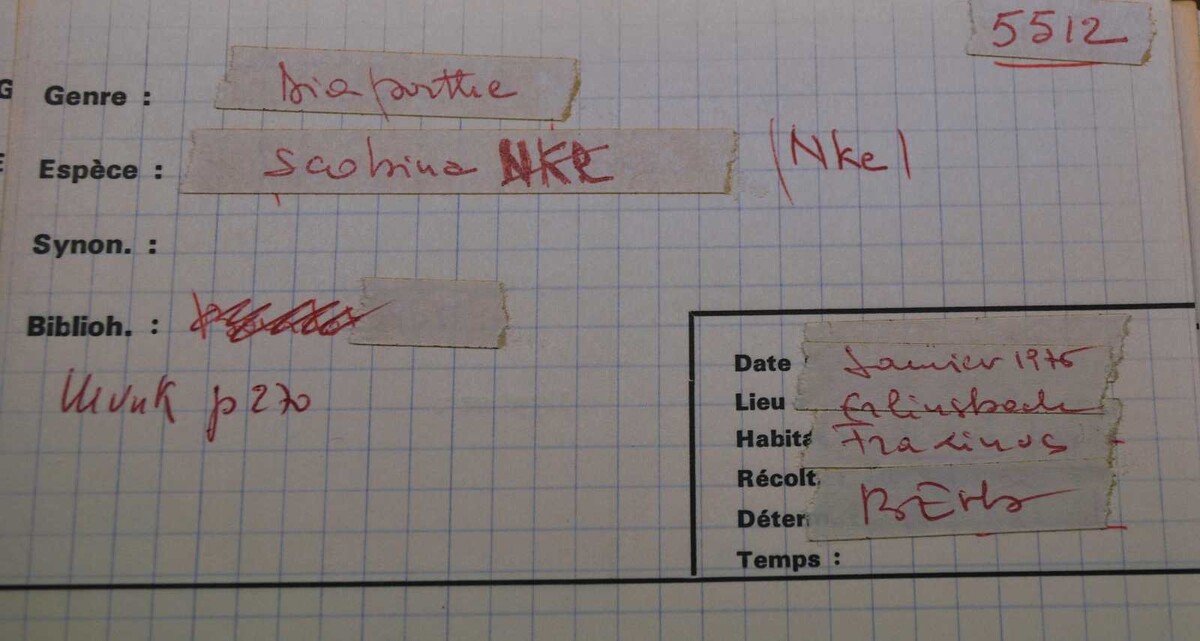 5512
Genre : Diaporthe
Espèce : scobina NKE (Nke)
Synon. :
Biblioh. :
Munk p 270
Date Janvier 1975
Lieu Erlinsbach
Habita Fraxinus
Récolt.
Déter
Temps :